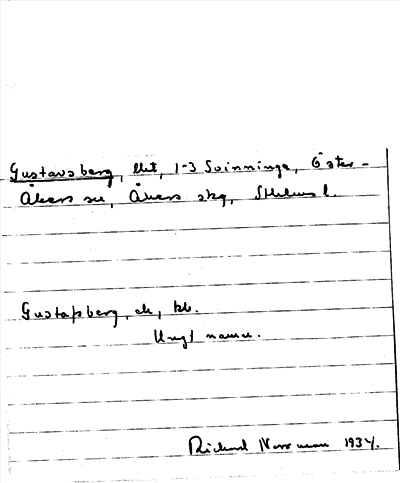 Gustavsberg, lht, 1-3 Svinninge, Öster-
Åkers sn, Åkers skg, Sthlms l.
Gustafsberg, ek, kb.
Ungt namn.
Rickard Norrman 1934.